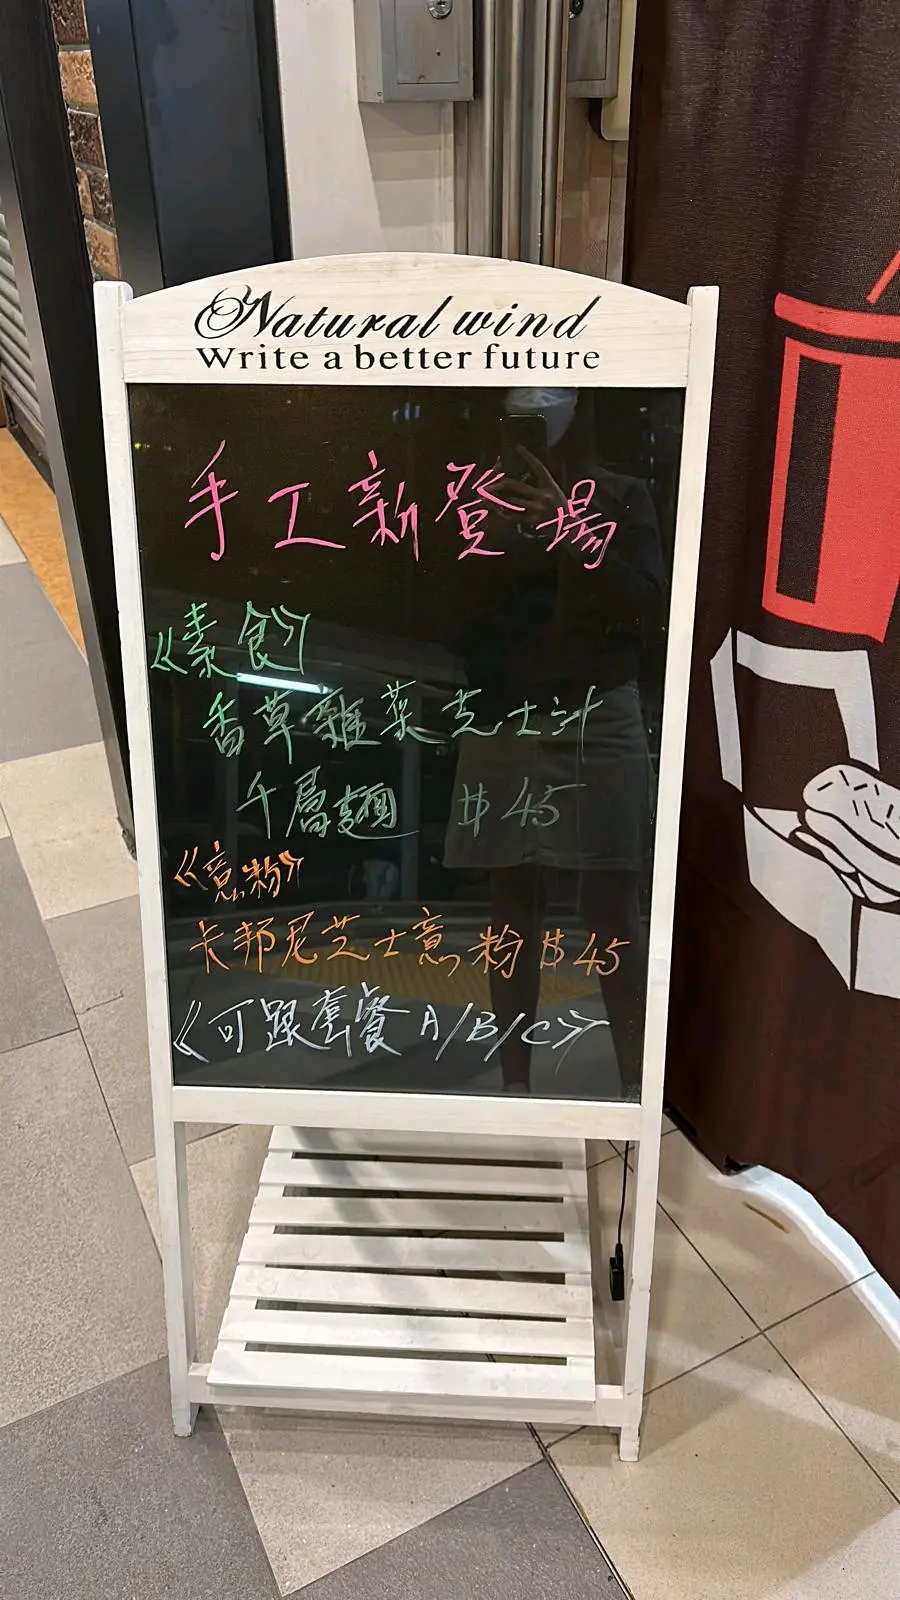 Natural wind
Write a better future
手工新登場
《素食》
香草雜菜芝士汁
千層麵 $45
《意粉》
卡邦尼芝士意粉 $45
《可跟套餐 A/B/C》